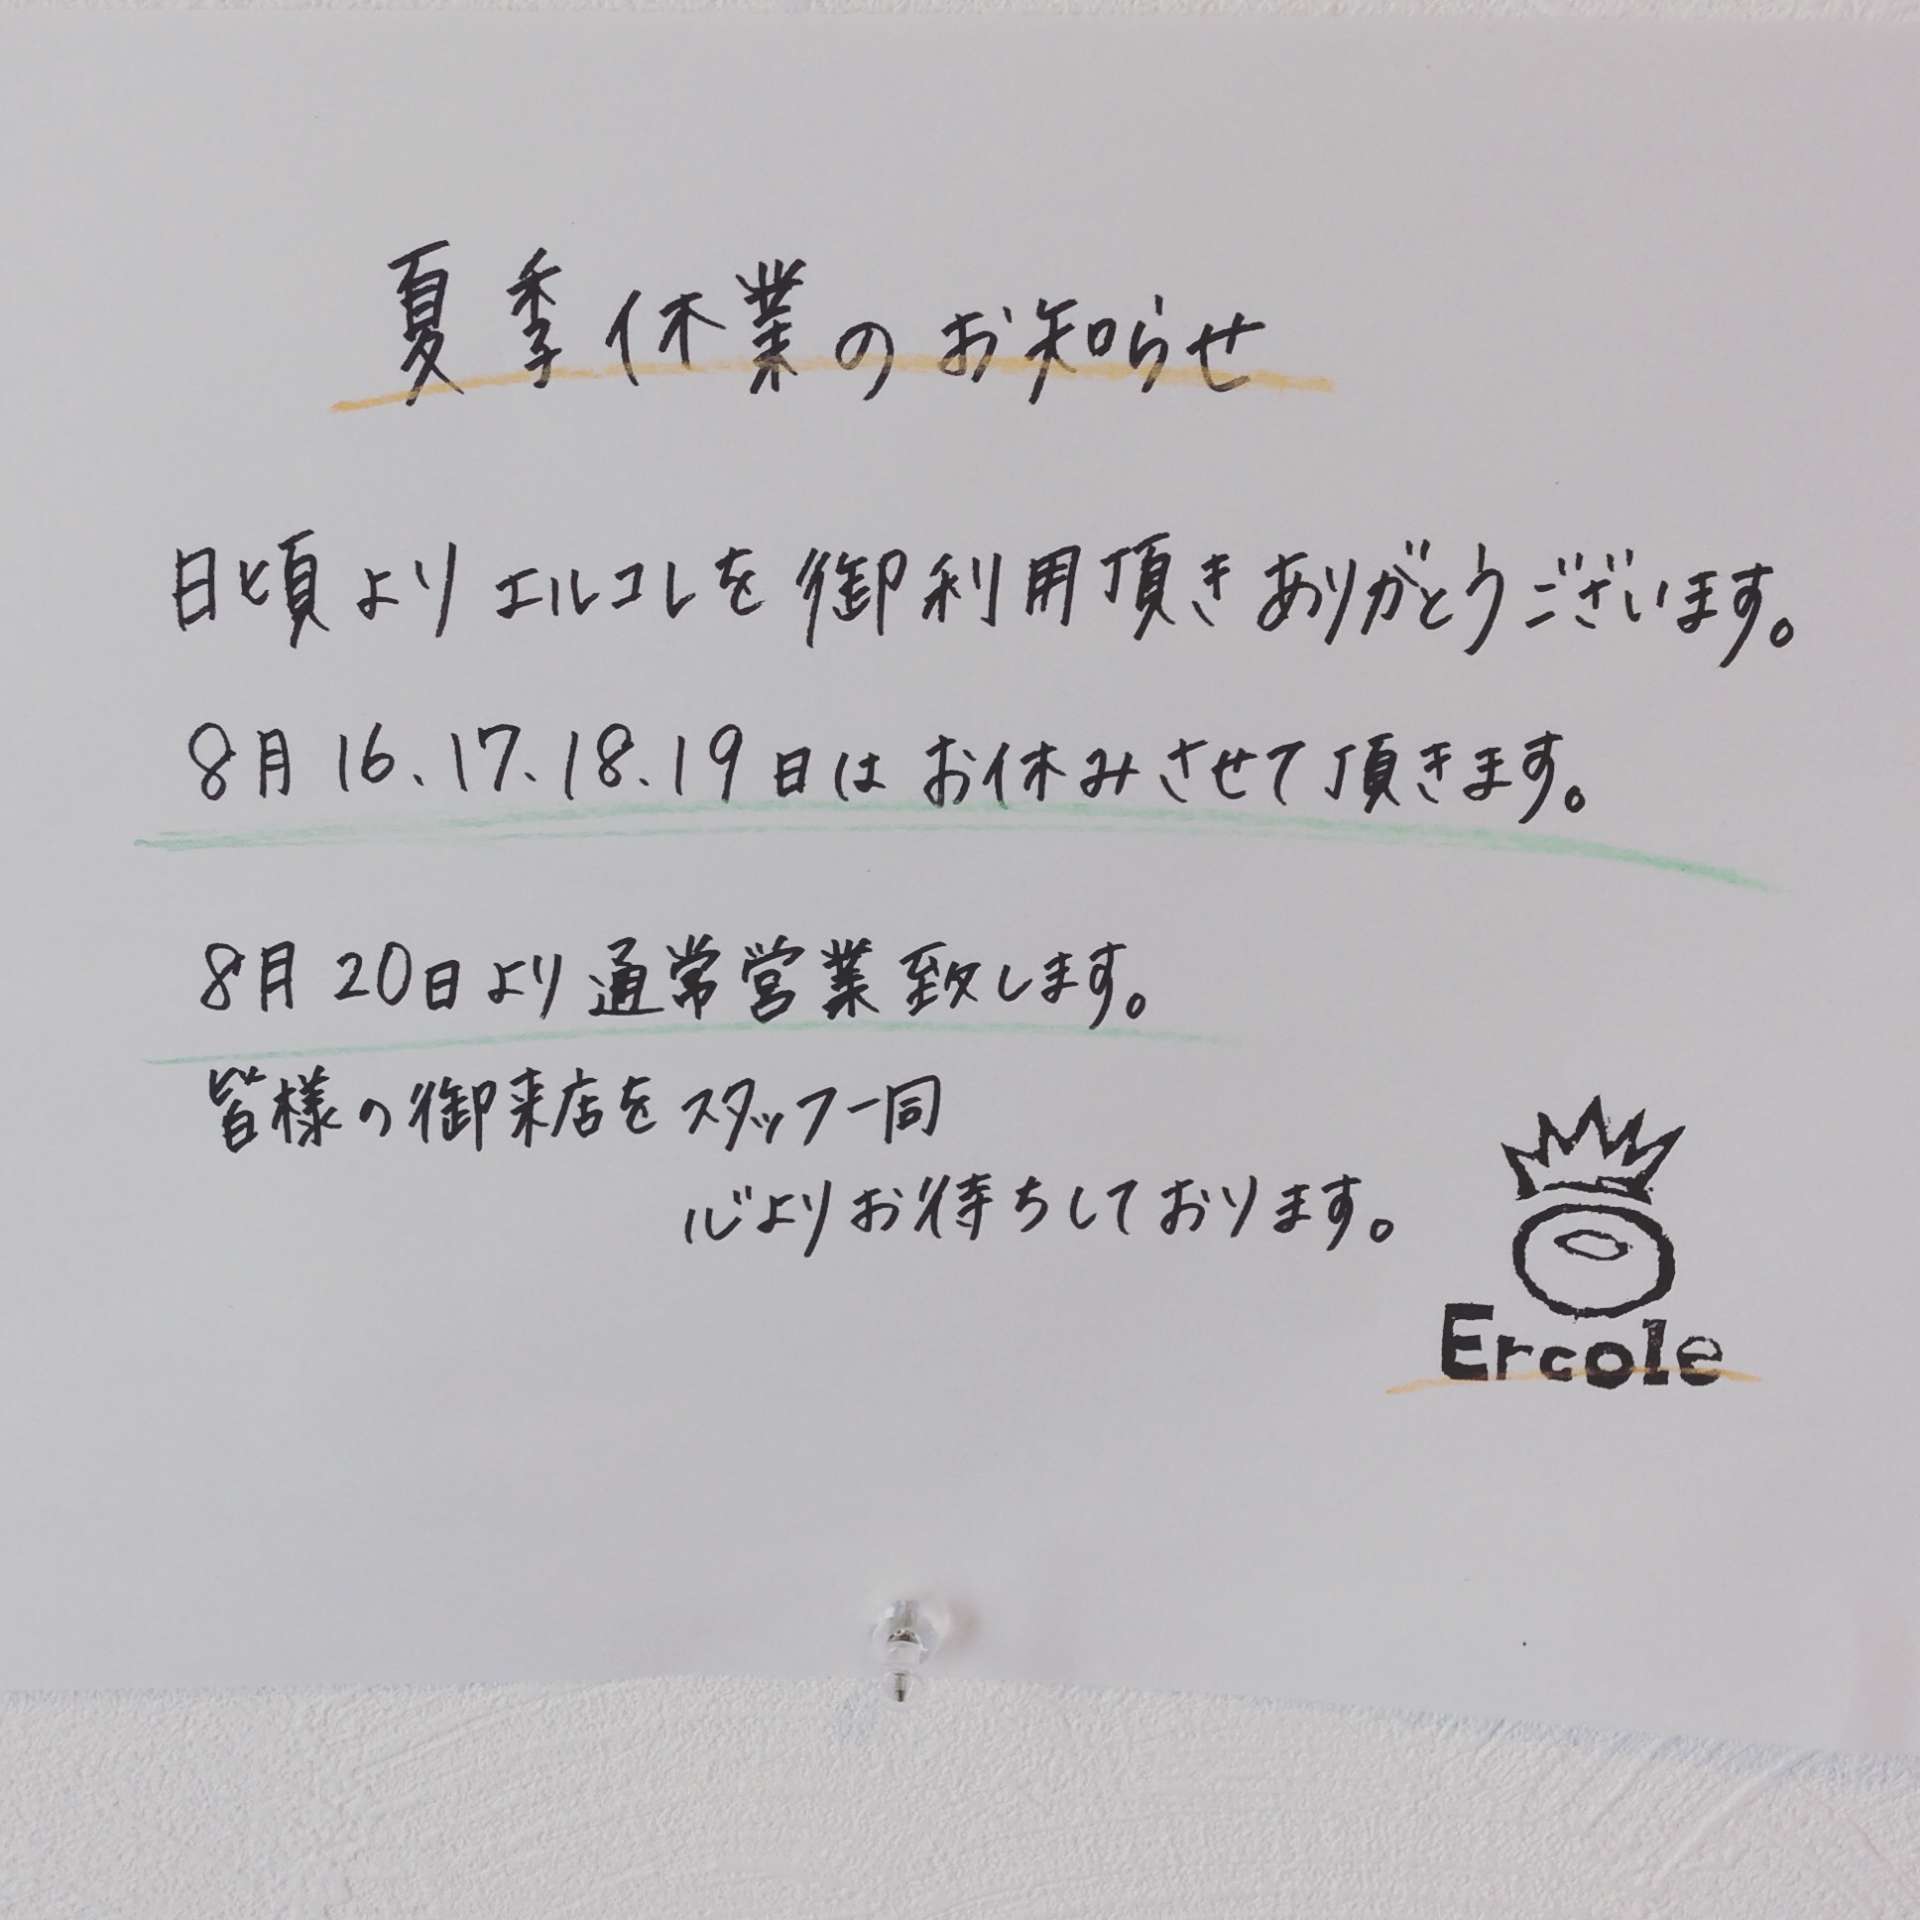 夏季休業のお知らせ
日頃よりエルコレを御利用頂きありがとうございます。
8月16、17、18、19日はお休みさせて頂きます。
8月20日より通常営業致します。
皆様の御来店をスタッフ一同
心よりお待ちしております。
Ercole